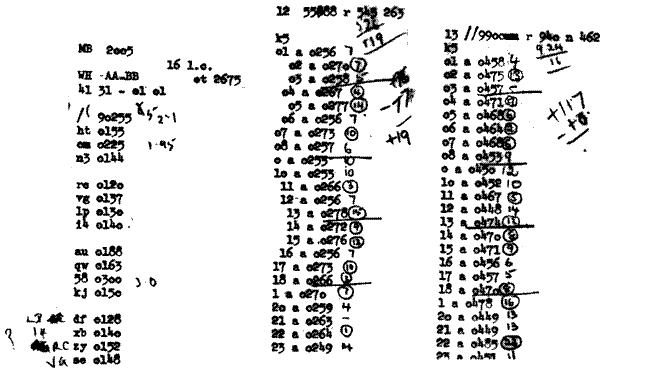 MB 2005
16 l.c.
WH -AA-BB ot 2675
41 31 - o1 o1
/( 90255
ht o155
om o225 1.95
n3 o144
re o12o
vg o137
lp o13o
i4 o14o
au o188
qw o163
58 o3oo 3.0
kj o15o
df o128
? 14 xb o14o
RC zy o152
VG se o148
12 r 545 263
k5
o1 a o256 7
o2 a o27o 7
o3 a o258
o4 a o267
o5 a o277 14
o6 a o256 7
o7 a o273 10
o8 a o257 6
o a o253 10
1o a o253 10
11 a o266
12 a o256 7
13 a o278
14 a o272 9
15 a o276
16 a o256 7
17 a o273 10
18 a o266
1 a o27o 7
2o a o259 4
21 a o263 -
22 a o264 1
23 a o249
-77
+19
13 //99oomm r 94o n 462
k5 924
o1 a o458 4 16
o2 a o475 13
o3 a o457 5
o4 a o471 9
o5 a o468
o6 a o464
o7 a o468
o8 a o453 9
o a o45o 12
1o a o452 10
11 a o467 5
12 a o448 14
13 a o474 12
14 a o47o
15 a o471 9
16 a o456 6
17 a o457 5
18 a o47o
1 a o478 16
2o a o449 13
21 a o449 13
22 a o485
23 a 11
+117